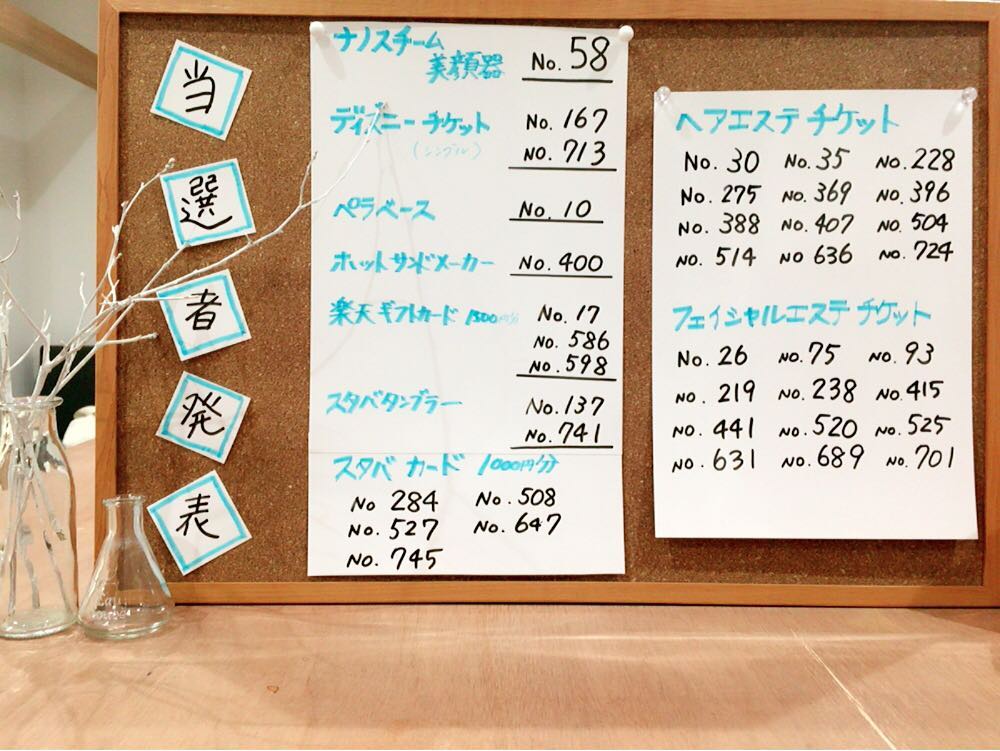 当
選
者
発
表
ナノスチーム
美顔器 No. 58
ディズニーチケット No. 167
(シングル) No. 713
ペラベース No. 10
ホットサンドメーカー No. 400
楽天ギフトカード 1500円分 No. 17
No. 586
No. 598
スタバタンブラー No. 137
No. 741
スタバカード 1000円分
No 284 No. 508
No. 527 No. 647
No. 745
ヘアエステチケット
No. 30 No. 35 No. 228
No. 275 No. 369 No. 396
No. 388 No. 407 No. 504
No. 514 No 636 No. 724
フェイシャルエステチケット
No. 26 No. 75 No. 93
No. 219 No. 238 No. 415
No. 441 No. 520 No. 525
No. 631 No. 689 No. 701